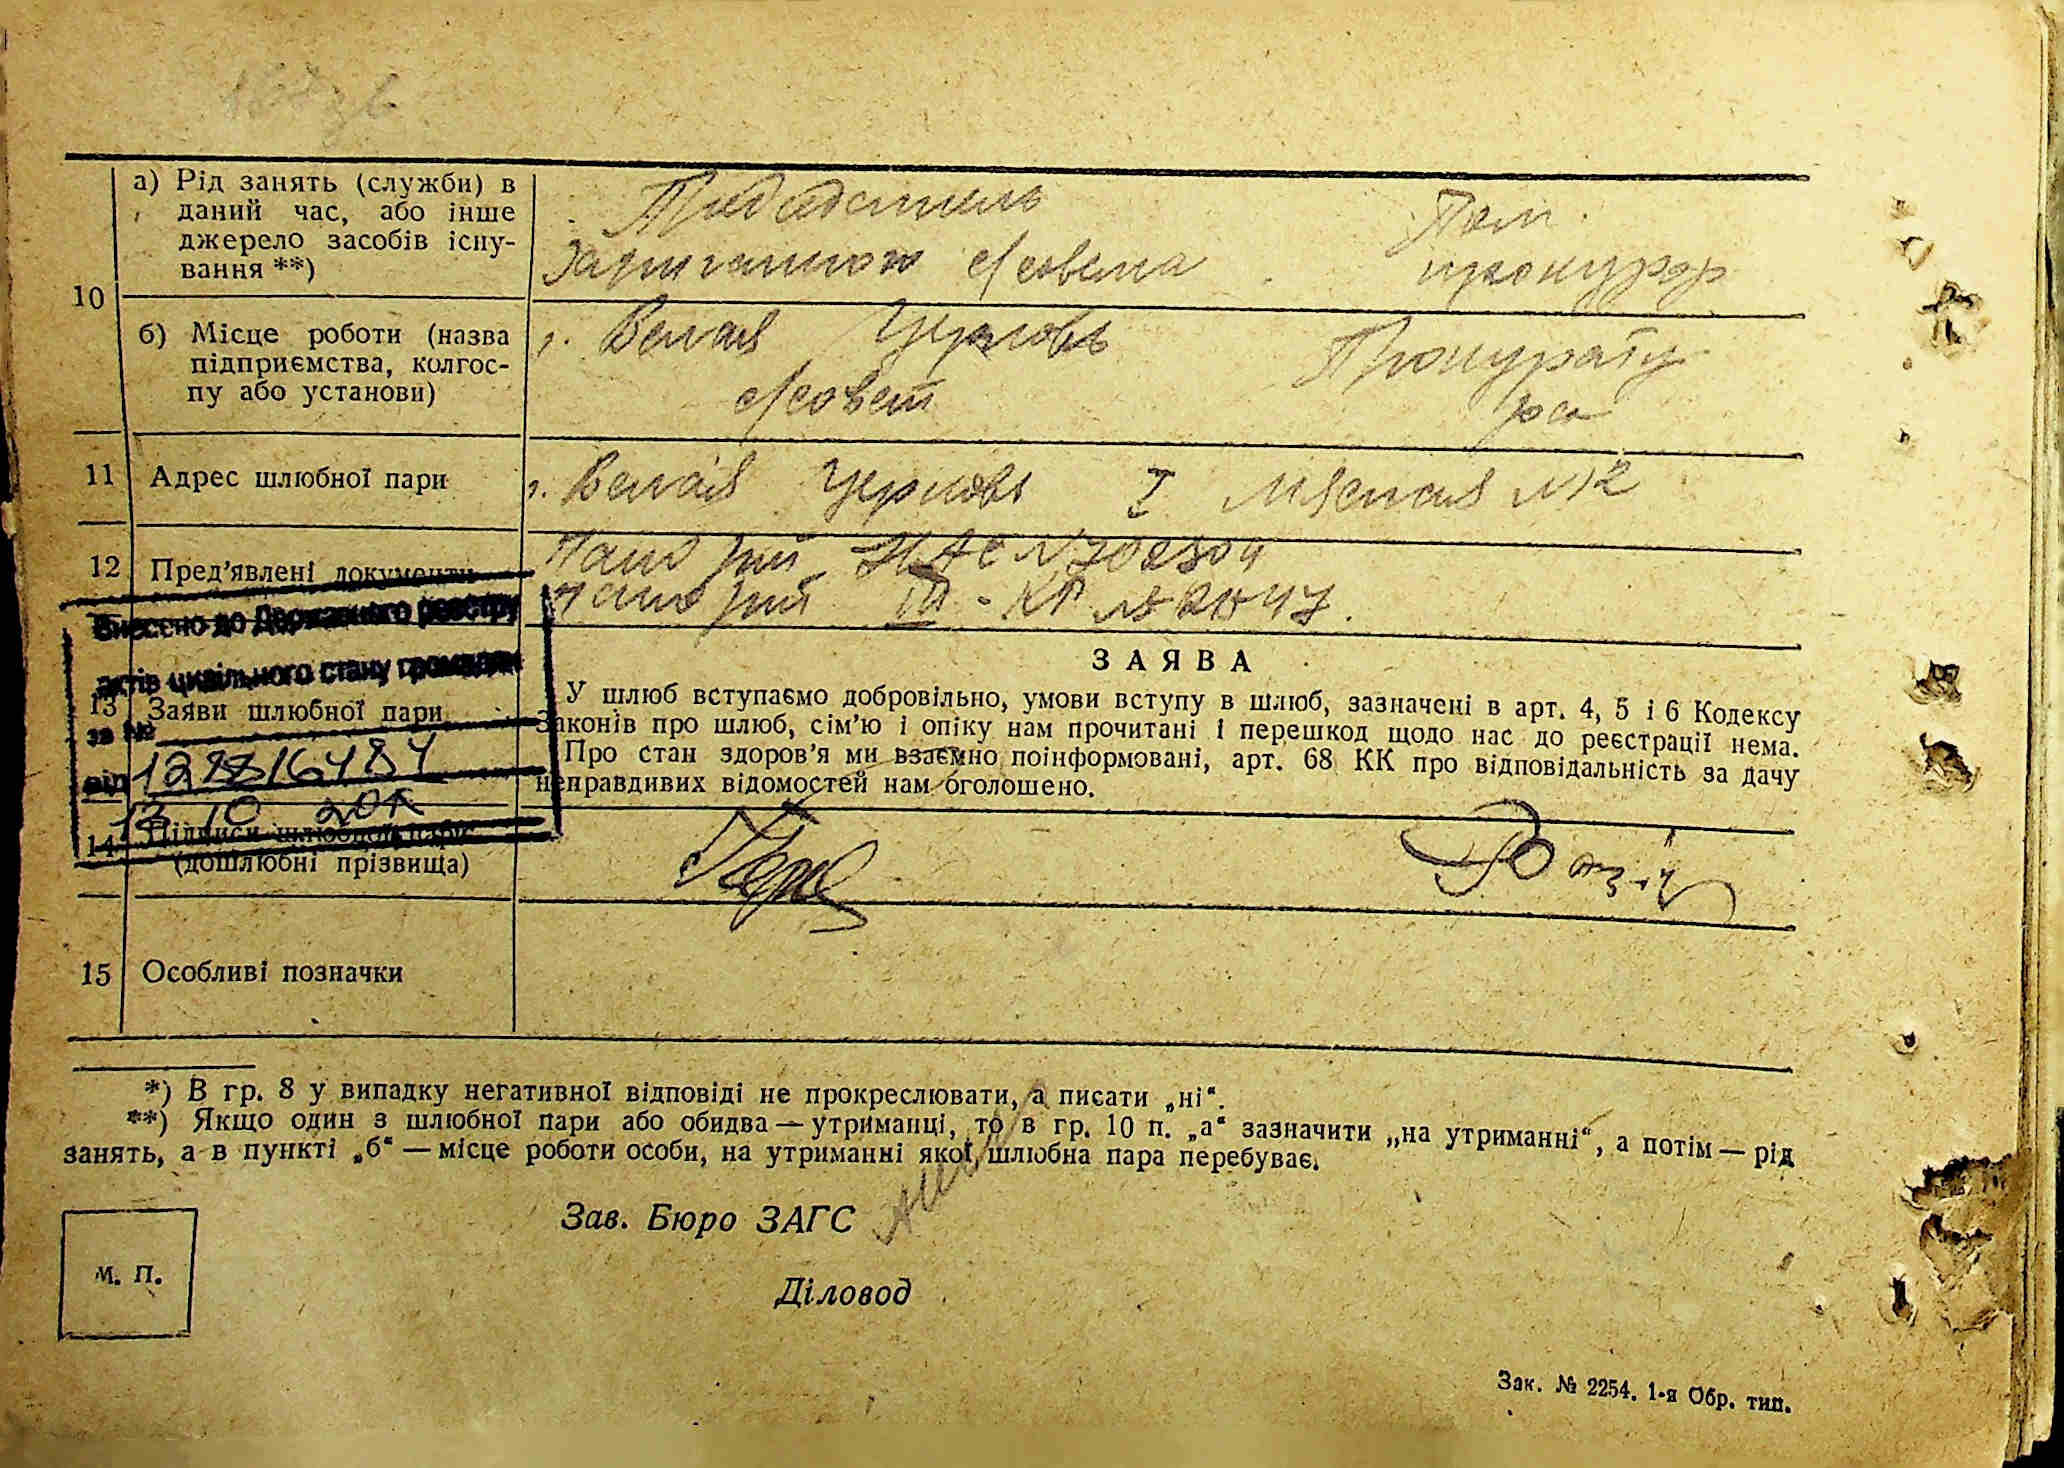 10
а) Рід занять (служби) в
даний час, або інше
джерело засобів існу-
вання **)
с/совета
Пом.
прокурор
б) Місце роботи (назва
підприємства, колгос-
пу або установи)
г. Белая Церковь
с/совет
Прокурату
ра
11 Адрес шлюбної пари
г. Белая Церковь I Мясная N 12
12 Пред'явлені документи
Паспорт
Паспорт III - КР
Внесено до Державного реєстру
актів цивільного стану громадян
за №
від
13 Заяви шлюбної пари
ЗАЯВА
У шлюб вступаємо добровільно, умови вступу в шлюб, зазначені в арт. 4, 5 і 6 Кодексу
Законів про шлюб, сім'ю і опіку нам прочитані і перешкод щодо нас до реєстрації нема.
Про стан здоров'я ми взаємно поінформовані, арт. 68 КК про відповідальність за дачу
неправдивих відомостей нам оголошено.
14 Підписи шлюбної пари
(дошлюбні прізвища)
15 Особливі позначки
*) В гр. 8 у випадку негативної відповіді не прокреслювати, а писати „ні“.
**) Якщо один з шлюбної пари або обидва — утриманці, то в гр. 10 п. „а“ зазначити „на утриманні“, а потім — рід
занять, а в пункті „б“ — місце роботи особи, на утриманні якої шлюбна пара перебуває.
Зав. Бюро ЗАГС
м. п.
Діловод
Зак. № 2254. 1-я Обр. тип.